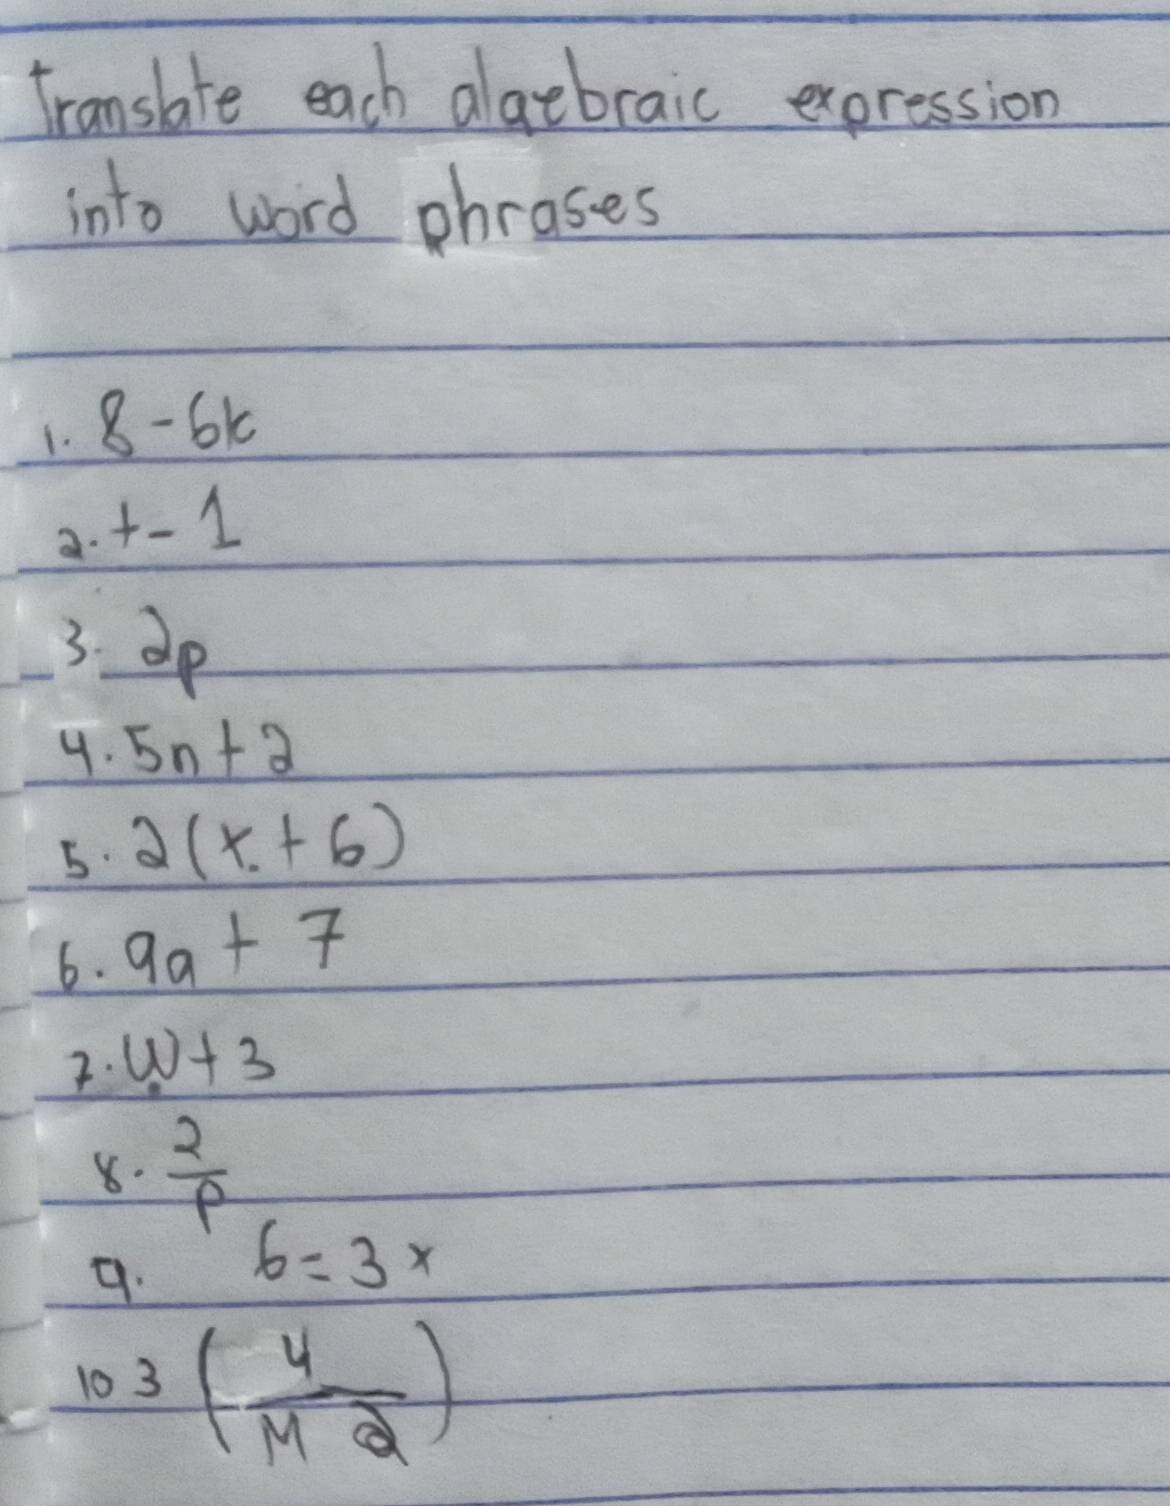 Translate each algebraic expression
into word phrases
1. 8 - 6k
2. t - 1
3. 2p
4. 5n + 2
5. 2 (x + 6)
6. 9a + 7
7. W + 3
8. 2/p
9. 6 = 3x
10 3 (4/M 2)